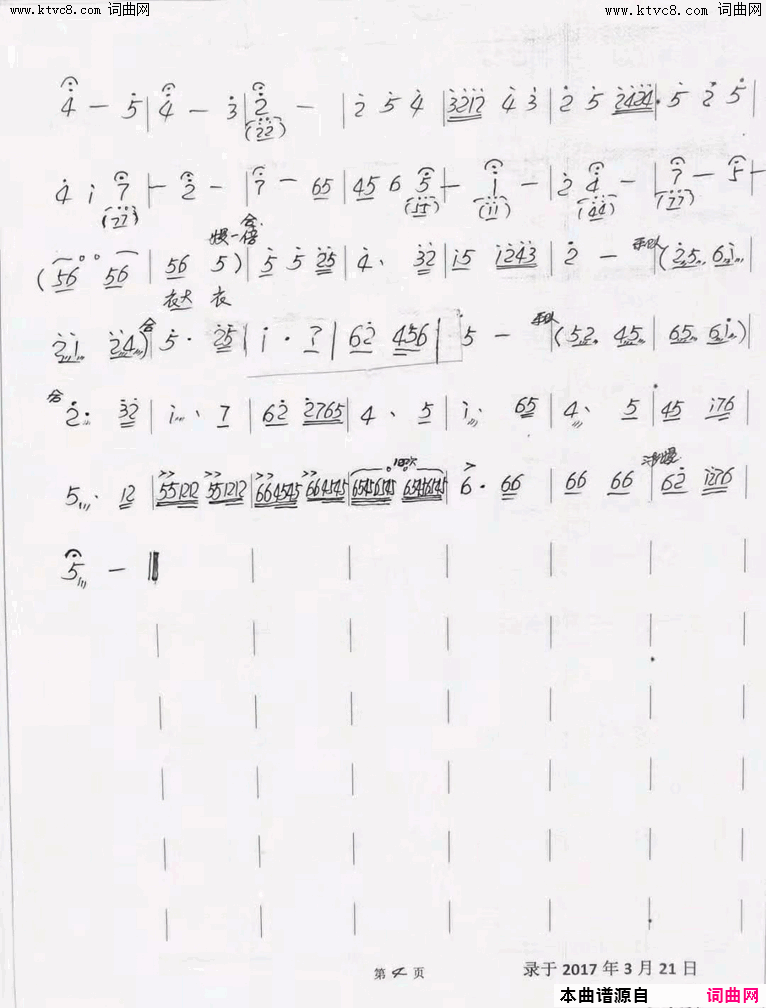 www.ktvc8.com 词曲网 www.ktvc8.com 词曲网
4̇ — 5̇ | 4̇ — 3̇ | 2̇ — | 2̇ 5̇ 4̇ | 3̇2̇1̇2̇ 4̇ 3̇ | 2̇ 5̇ 2̇4̇2̇4̇ · 5̇ 2̇ 5̇ |
(2̇2̇)
4̇ i 7̇ | — 2̇ — | 7̇ — 65 | 45 6 5̇ | — i — | 2̇ 4̇ — | 7̇ — 5̇ —
(7̇7̇) (5̇5̇) (i i) (4̇4̇) (7̇7̇)
慢一倍 合
(56 56 | 56 5) | 5̇ 5̇ 2̇5̇ | 4̇· 3̇2̇ | i5 i2̇4̇3̇ | 2̇ — (2̇5 6i |
衣大 衣
2̇i 2̇4̇) 合 | 5̇· 2̇5̇ | i · 7 | 62̇ 456 | 5 — | (52 45 | 65 6i) |
合 2̇· 3̇2̇ | i· 7 | 62̇ 2̇765 | 4· 5 | i· 65 | 4· 5 | 45 i76 |
5· 12 | 551212 551212 | 664545 664545 | 65456545 65456145 | 6· 66 | 66 66 | 62̇ i2̇76 |
5 — ‖
第 4 页 录于 2017 年 3 月 21 日
本曲谱源自 词曲网